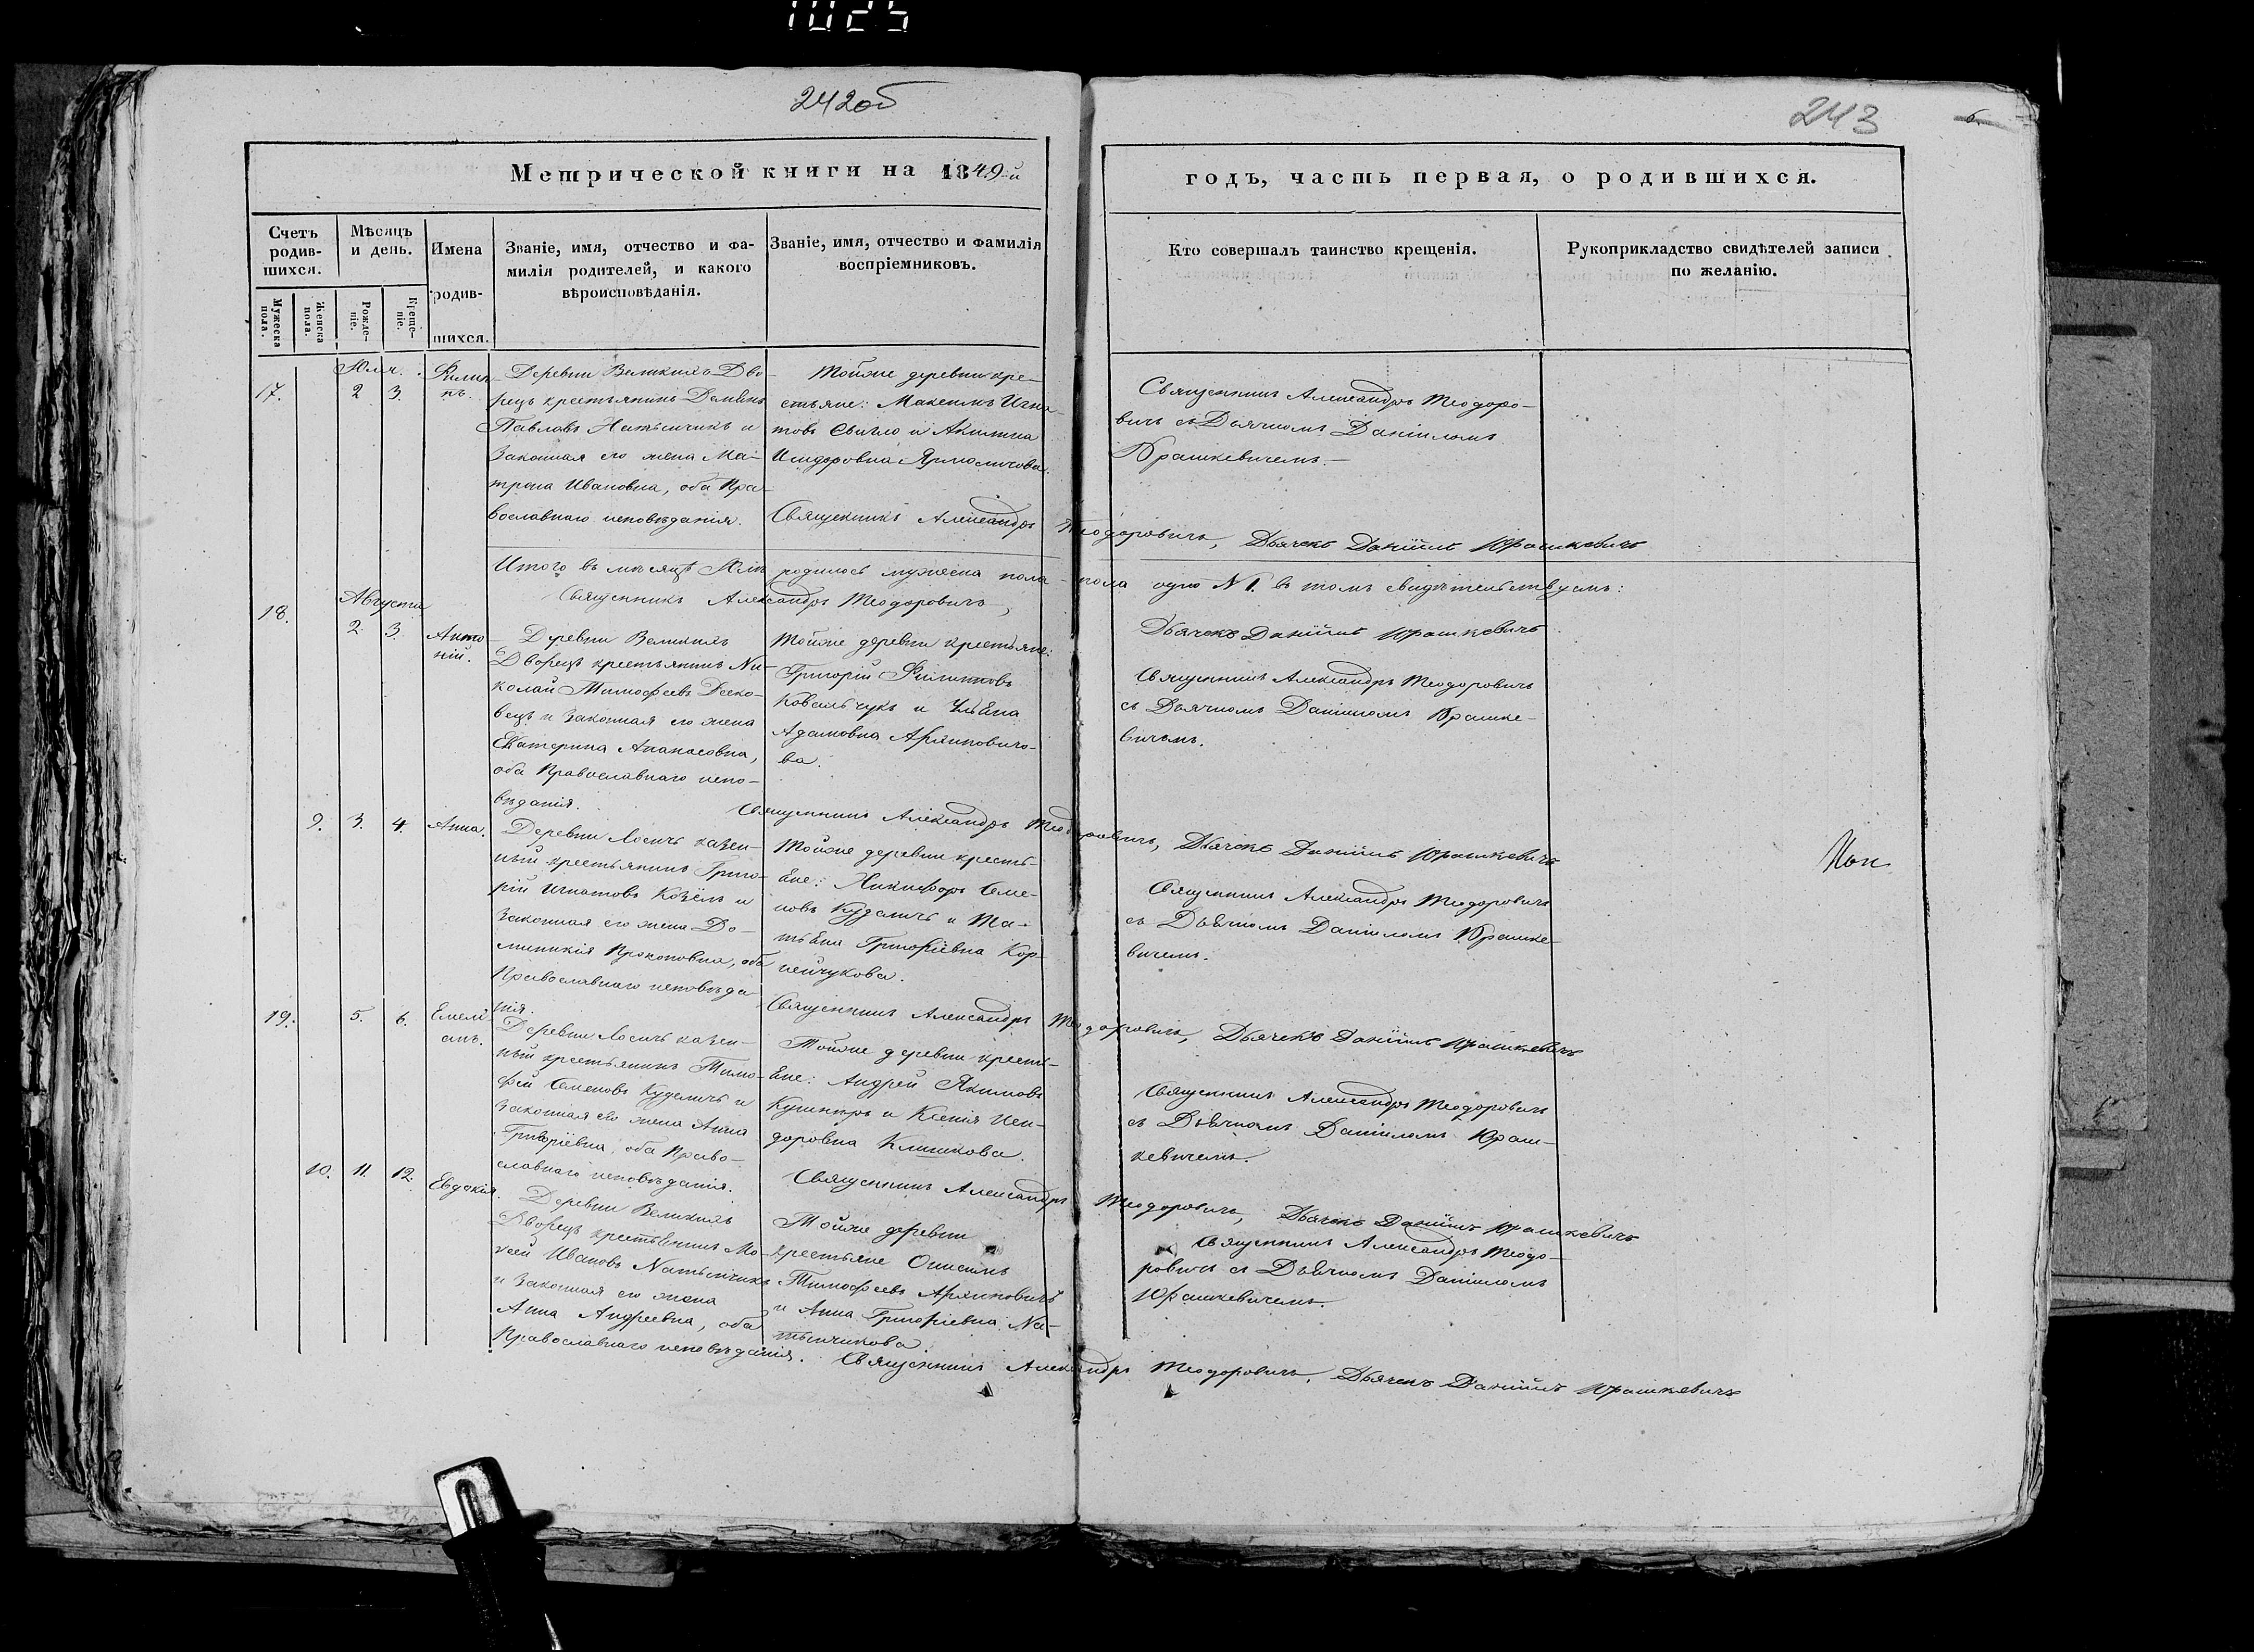 1025
242об
243
6.
Метрической книги на 1849-й
годъ, часть первая, о родившихся.
Счетъ родив-шихся.
Мужеска пола.
Женска пола.
Мѣсяцъ и день.
Рожде-ніе.
Креще-ніе.
Имена родив-шихся.
Званіе, имя, отчество и фа-
милія родителей, и какого
вѣроисповѣданія.
Званіе, имя, отчество и фамилія
воспріемниковъ.
Кто совершалъ таинство крещенія.
Рукоприкладство свидѣтелей записи
по желанію.
17.
2 3.
Филип-
пъ.
Деревни Дво-
рецъ крестьянинъ
Павловъ и
Законная его жена Ма-
трона Ивановна, оба Пра-
вославнаго исповѣданія.
Тойже деревни кре-
стьяне: Максимъ Игна-
товъ и
Священникъ Александръ Теодоро-
вичъ съ Дьячкомъ Даніиломъ
Юрашкевичемъ.
Священникъ Александръ Теодоровичъ, Дьячекъ Даніилъ Юрашкевичъ
Итого въ мѣсяцѣ родилось мужеска пола пола одно N 1. въ томъ свидѣтельствуемъ:
Священникъ Александръ Теодоровичъ,
Дьячекъ Даніилъ Юрашкевичъ
Августа
18.
2. 3.
Анто-
ній.
Деревни
Дворецъ крестьянинъ Ни-
колай Тимофеевъ
и Законная его жена
Екатерина
оба Православнаго испо-
вѣданія.
Тойже деревни крестьяне:
Григорій Филиповъ
Ковальчукъ и
Адамовна
Священникъ Александръ Теодоровичъ
съ Дьячкомъ Даніиломъ Юрашке-
вичемъ.
Священникъ Александръ Теодоровичъ, Дьячекъ Даніилъ Юрашкевичъ
9. 3. 4. Анна.
Деревни Лосичъ казен-
ный крестьянинъ Григо-
рій Игнатовъ и
Законная его жена До-
миникія Прокоповна, оба
Православнаго исповѣда-
нія.
Тойже деревни кресть-
яне: Никифоръ Семе-
новъ Куделичъ и Та-
тьяна Григоріевна Кор-
нейчукова.
Священникъ Александръ Теодоровичъ
съ Дьячкомъ Даніиломъ Юрашке-
вичемъ.
Священникъ Александръ Теодоровичъ, Дьячекъ Даніилъ Юрашкевичъ
19. 5. 6.
Емелі-
анъ.
Деревни Лосичъ казен-
ный крестьянинъ Тимо-
фей Семеновъ Куделичъ и
Законная его жена Анна
Григоріевна, оба Право-
славнаго исповѣданія.
Тойже деревни кресть-
яне: Андрей Якимовъ
Кушниръ и Ксенія Иси-
доровна Климкова.
Священникъ Александръ Теодоровичъ
съ Дьячкомъ Даніиломъ Юраш-
кевичемъ.
Священникъ Александръ Теодоровичъ, Дьячекъ Даніилъ Юрашкевичъ
10. 11. 12.
Евдокія.
Деревни
Дворецъ крестьянинъ Мо-
исей Ивановъ
и Законная его жена
Анна Андреевна, оба
Православнаго исповѣданія.
Тойже деревни
крестьяне Онисимъ
Тимофеевъ
и Анна Григоріевна
Священникъ Александръ Теодо-
ровичъ съ Дьячкомъ Даніиломъ
Юрашкевичемъ.
Священникъ Александръ Теодоровичъ, Дьячекъ Даніилъ Юрашкевичъ